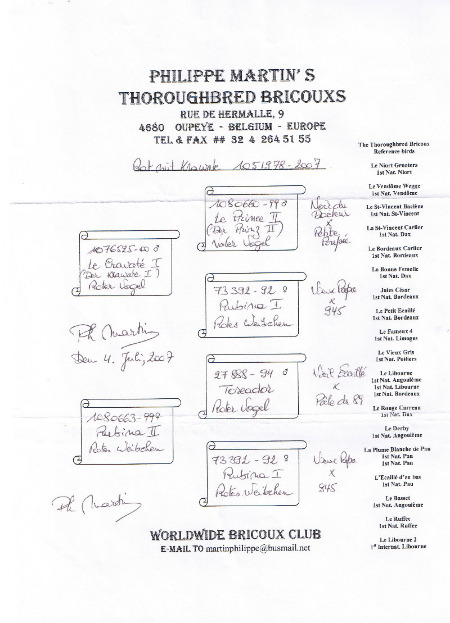 PHILIPPE MARTIN'S
THOROUGHBRED BRICOUXS
RUE DE HERMALLE, 9
4680 OUPEYE - BELGIUM - EUROPE
TEL & FAX ## 32 4 264 51 55
Rot mit Krawate 1051978-2007
1076525-00 ♂
Le Cravaté I
(Der Krawate I)
Roter Vogel
Ph Martin
Den 4. Juli, 2007
1080663-99 ♀
Rubina II
Rotes Weibchen
Ph Martin
1080660-99 ♂
Le Prince II
(Der Prinz II)
Roter Vogel
Noir du
Docteur
X
Petite
73392-92 ♀
Rubina I
Rotes Weibchen
Vieux Papa
X
945
27888-94 ♂
Toreador
Roter Vogel
Vieil Ecaillé
X
Pâle du 85
73392-92 ♀
Rubina I
Rotes Weibchen
Vieux Papa
X
945
The Thoroughbred Bricoux
Reference birds
Le Niort Genetera
1st Nat. Niort
Le Vendôme Wegge
1st Nat. Vendôme
Le St-Vincent Bastène
1st Nat. St-Vincent
Le St-Vincent Carlier
1st Nat. Dax
Le Bordeaux Carlier
1st Nat. Bordeaux
La Bonne Femelle
1st Nat. Dax
Jules César
1st Nat. Bordeaux
Le Petit Ecaillé
1st Nat. Bordeaux
Le Fameux 4
1st Nat. Limoges
Le Vieux Gris
1st Nat. Poitiers
Le Libourne
1st Nat. Angoulême
1st Nat. Libourne
1st Nat. Bordeaux
Le Rouge Carreau
1st Nat. Dax
Le Derby
1st Nat. Angoulême
La Plume Blanche de Pau
1st Nat. Pau
1st Nat. Pau
L'Ecaillé d'en bas
1st Nat. Pau
Le Basset
1st Nat. Angoulême
Le Ruffec
1st Nat. Ruffec
Le Libourne 2
1st Internat. Libourne
WORLDWIDE BRICOUX CLUB
E-MAIL TO martinphilippe@busmail.net